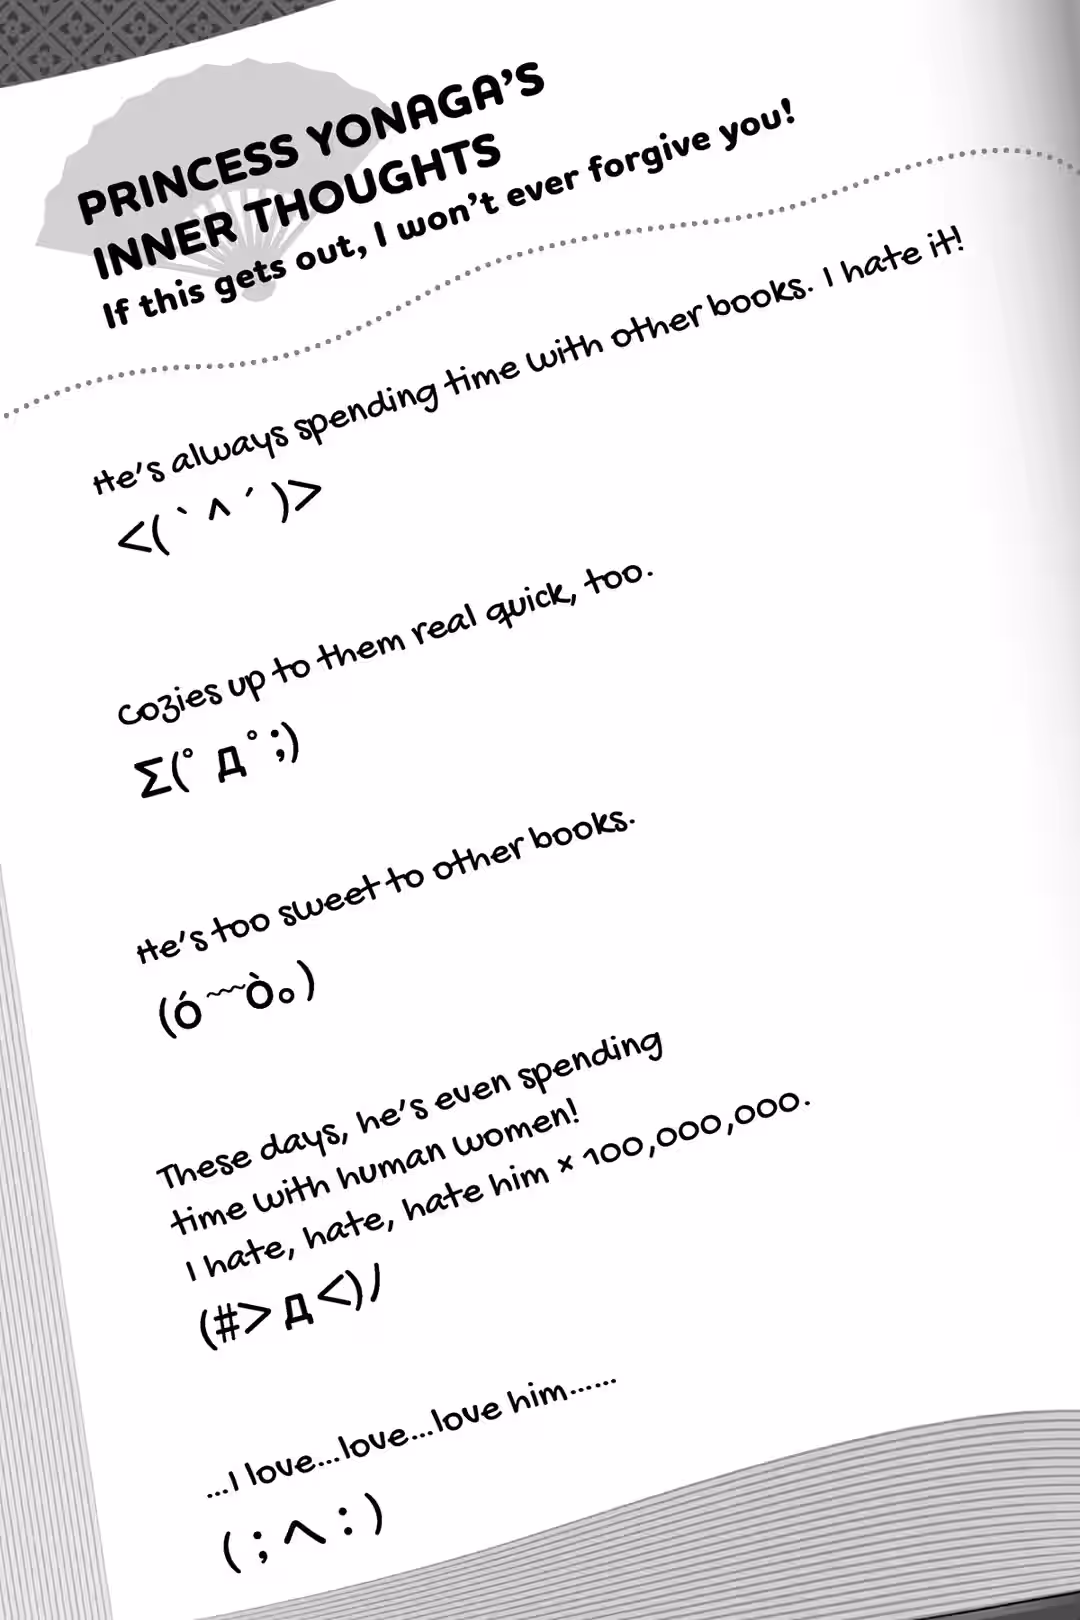 PRINCESS YONAGA'S
INNER THOUGHTS
If this gets out, I won't ever forgive you!
He's always spending time with other books. I hate it!
<(｀^´)>
Cozies up to them real quick, too.
Σ(ﾟДﾟ;)
He's too sweet to other books.
(ó﹏ò｡)
These days, he's even spending
time with human women!
I hate, hate, hate him × 100,000,000.
(#>д<)ﾉ
...I love...love...love him......
(;へ:)